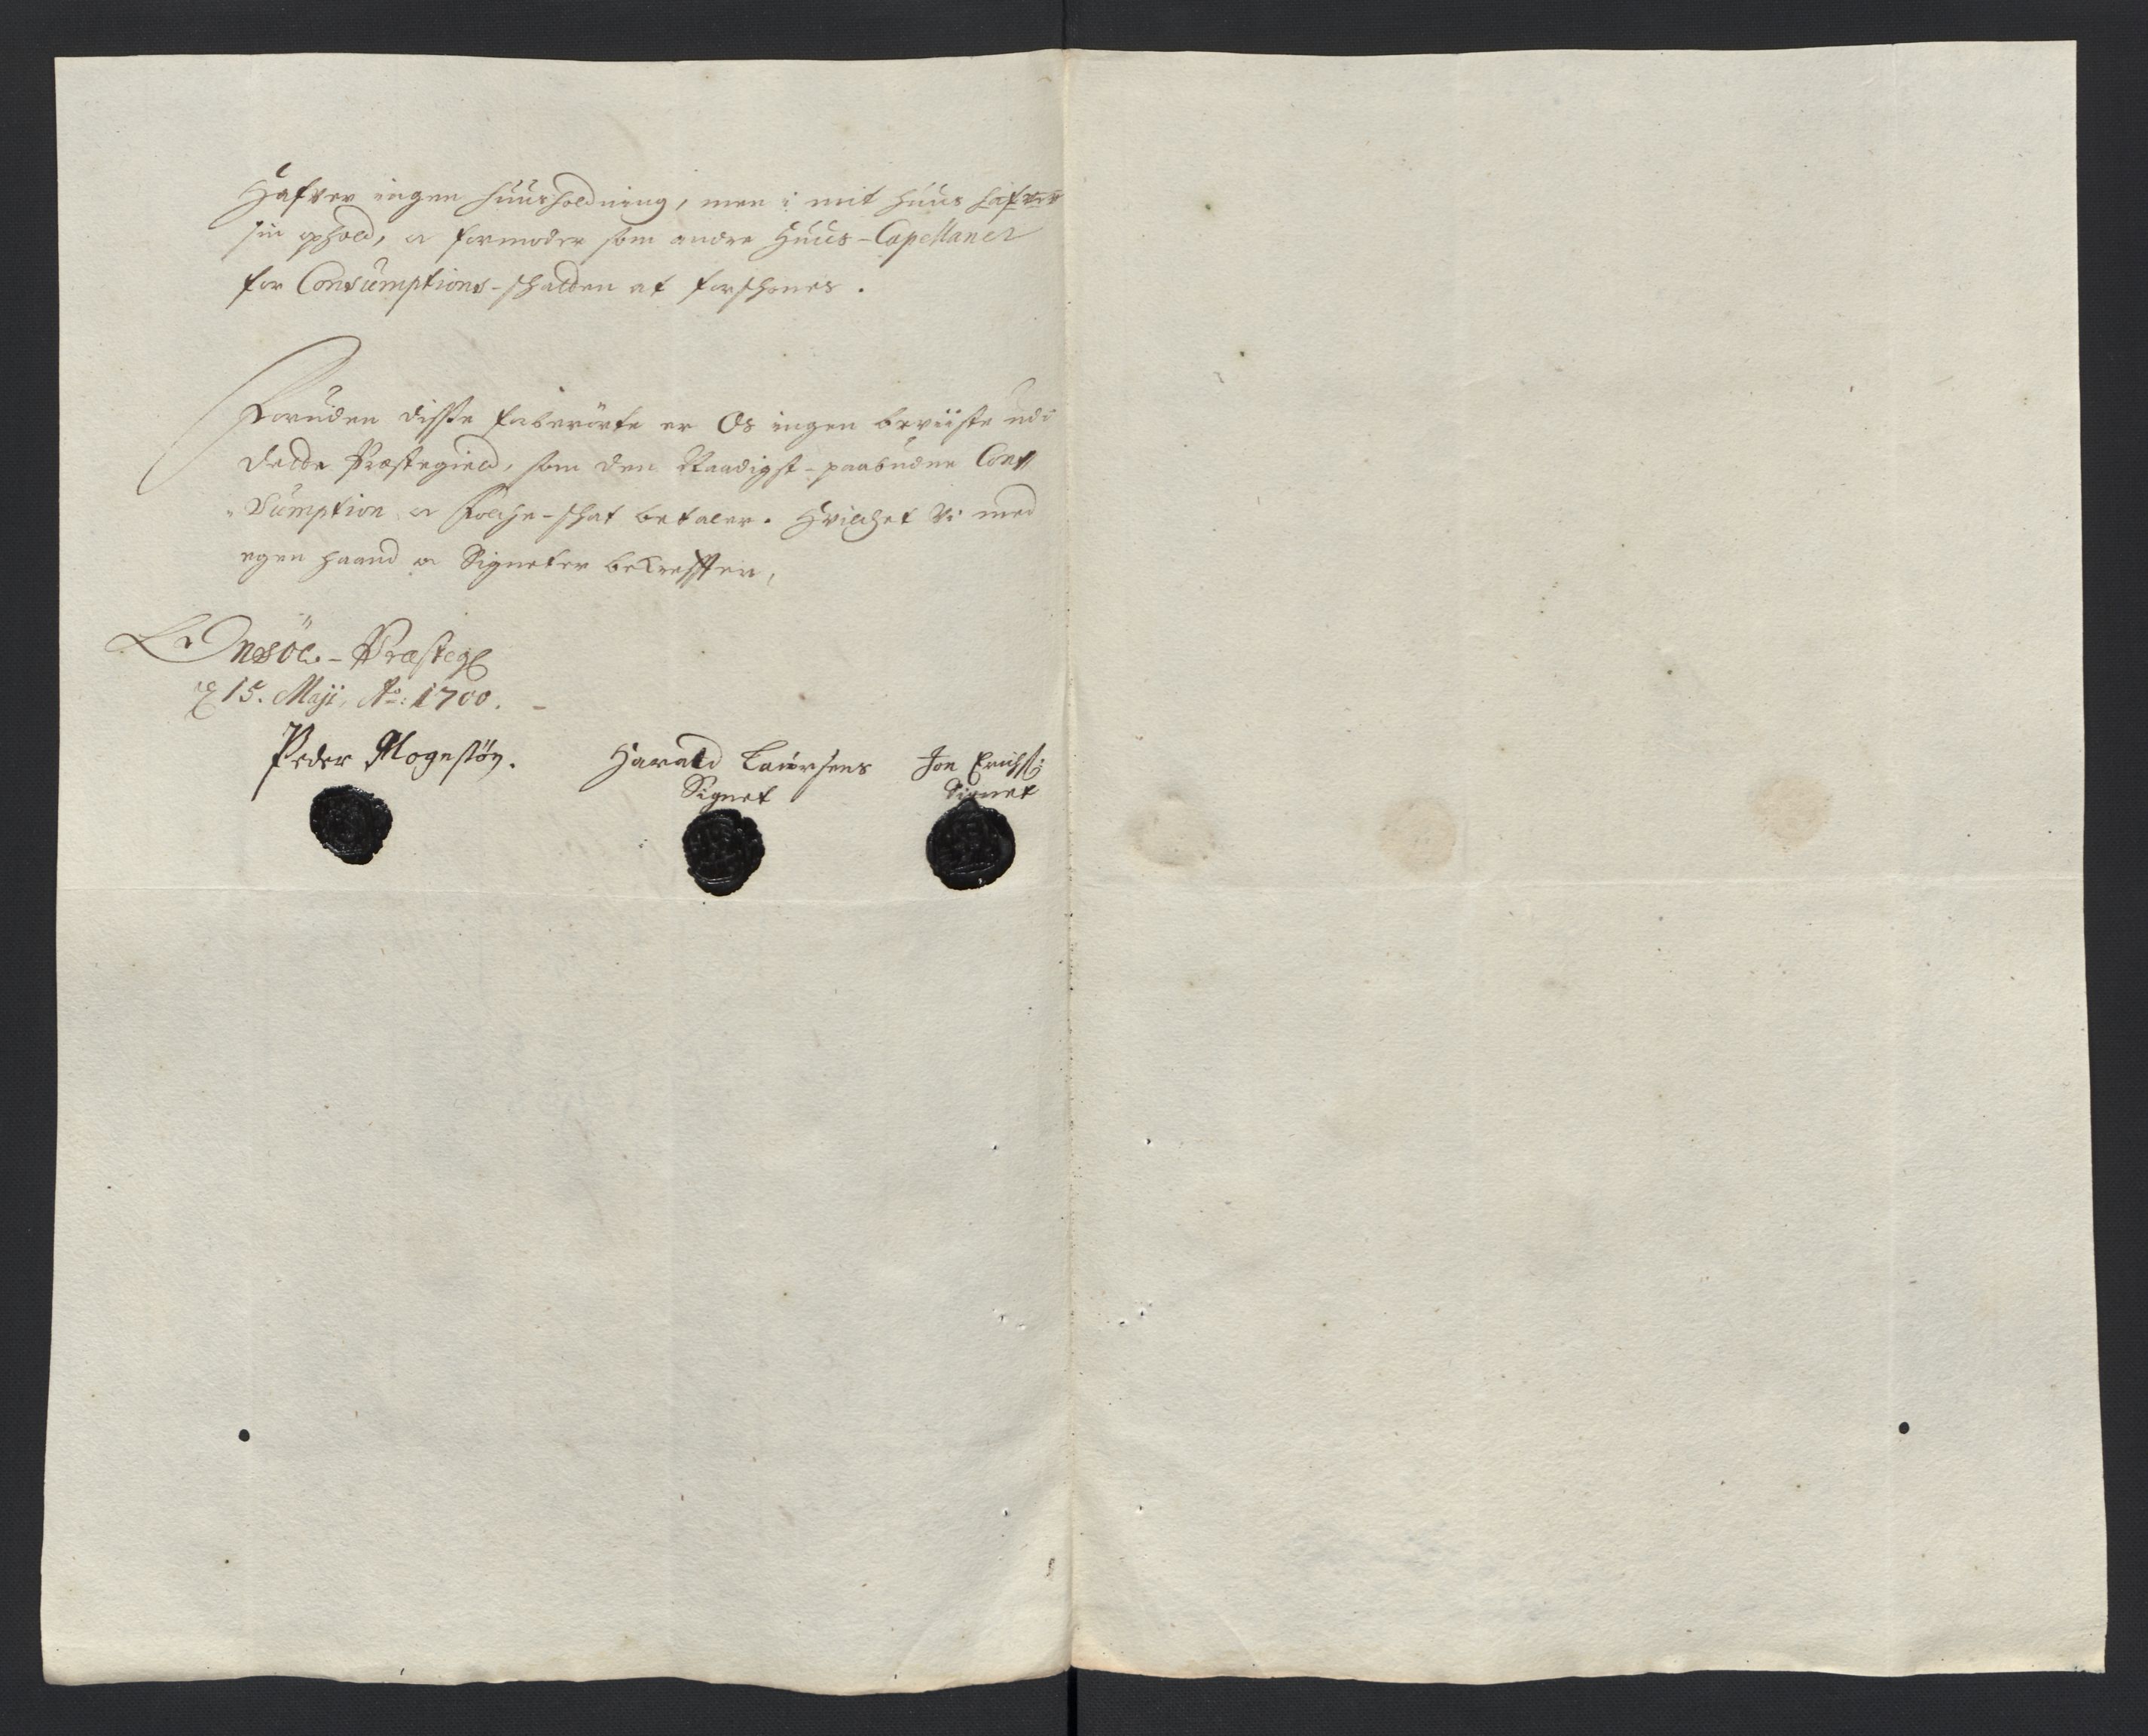 Hafver ingen huusholdning, men i mit huus hafver
sin ophold, oc formoder som andre Huus-Capellaner
for Consumptions-schatten at forschones.
Foruden disse ... er Os ingen beviiste udi
dette Præstegield, som den Naadigst-paabudne Con¬
sumption oc Folche-schat betaler. Hvilchet Vi med
egen haand oc Signeter bekreffter,
Onsöe-Præsteg
15. Maji, Ao: 1700.
Peder Mogensøn. Harald Laursens Jon Erichs:
Signet Signet